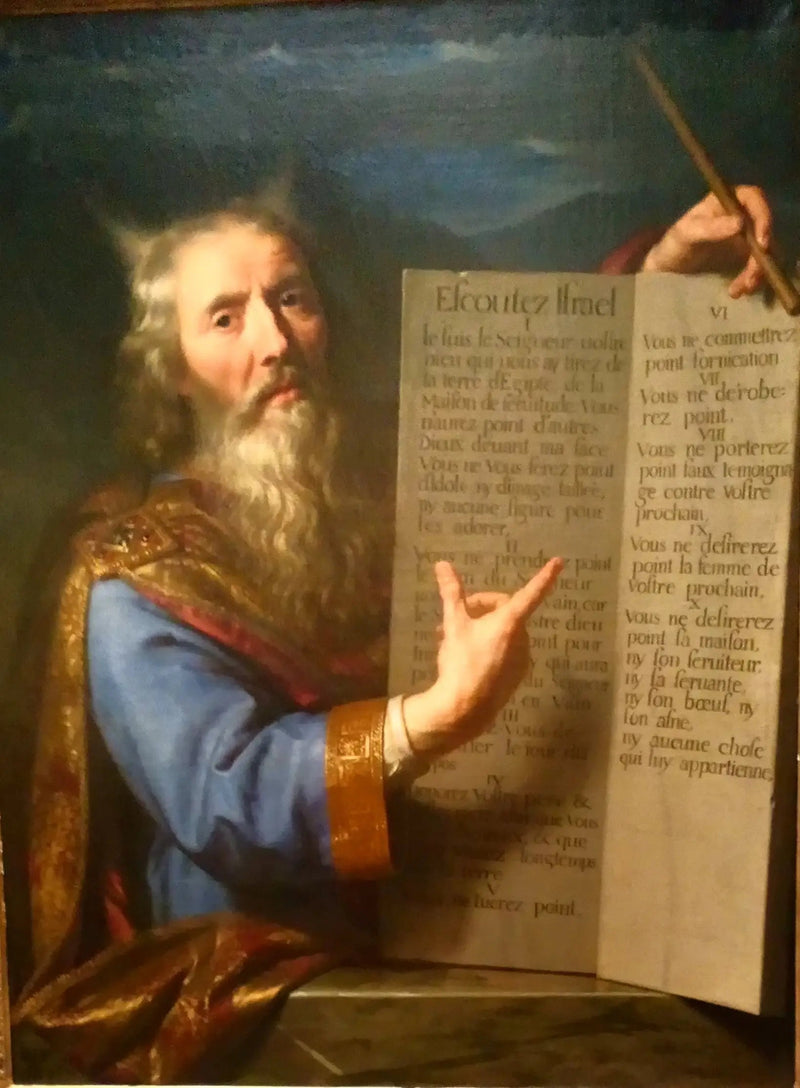 Eſcoutez Iſrael
I
Ie ſuis le Seigneur voſtre
Dieu qui vous ay tirez de
la terre d'Egipte, de la
Maiſon de ſeruitude. Vous
n'aurez point d'autres
Dieux deuant ma face
Vous ne Vous ferez point
d'Idole ny d'image taillée,
ny aucune figure pour
les adorer,
II
Vous ne prendrez point
du Seigneur
vain, car
le stre dieu
pour
y qui aura
du Seigneur
en Vain
III
Vous de
le iour du
pos
IV
honorez Voſtre pere &
que Vous
& que
longtemps
terre
V
ne tuerez point.
VI
Vous ne commettrez
point fornication
VII
Vous ne dérobe=
rez point.
VIII
Vous ne porterez
point faux temoigna
ge contre Voſtre
prochain,
IX
Vous ne deſirerez
point la femme de
Voſtre prochain,
X
Vous ne deſirerez
point ſa maiſon,
ny ſon ſeruiteur,
ny ſa ſeruante,
ny ſon bœuf, ny
ſon aſne,
ny aucune choſe
qui luy appartienne,